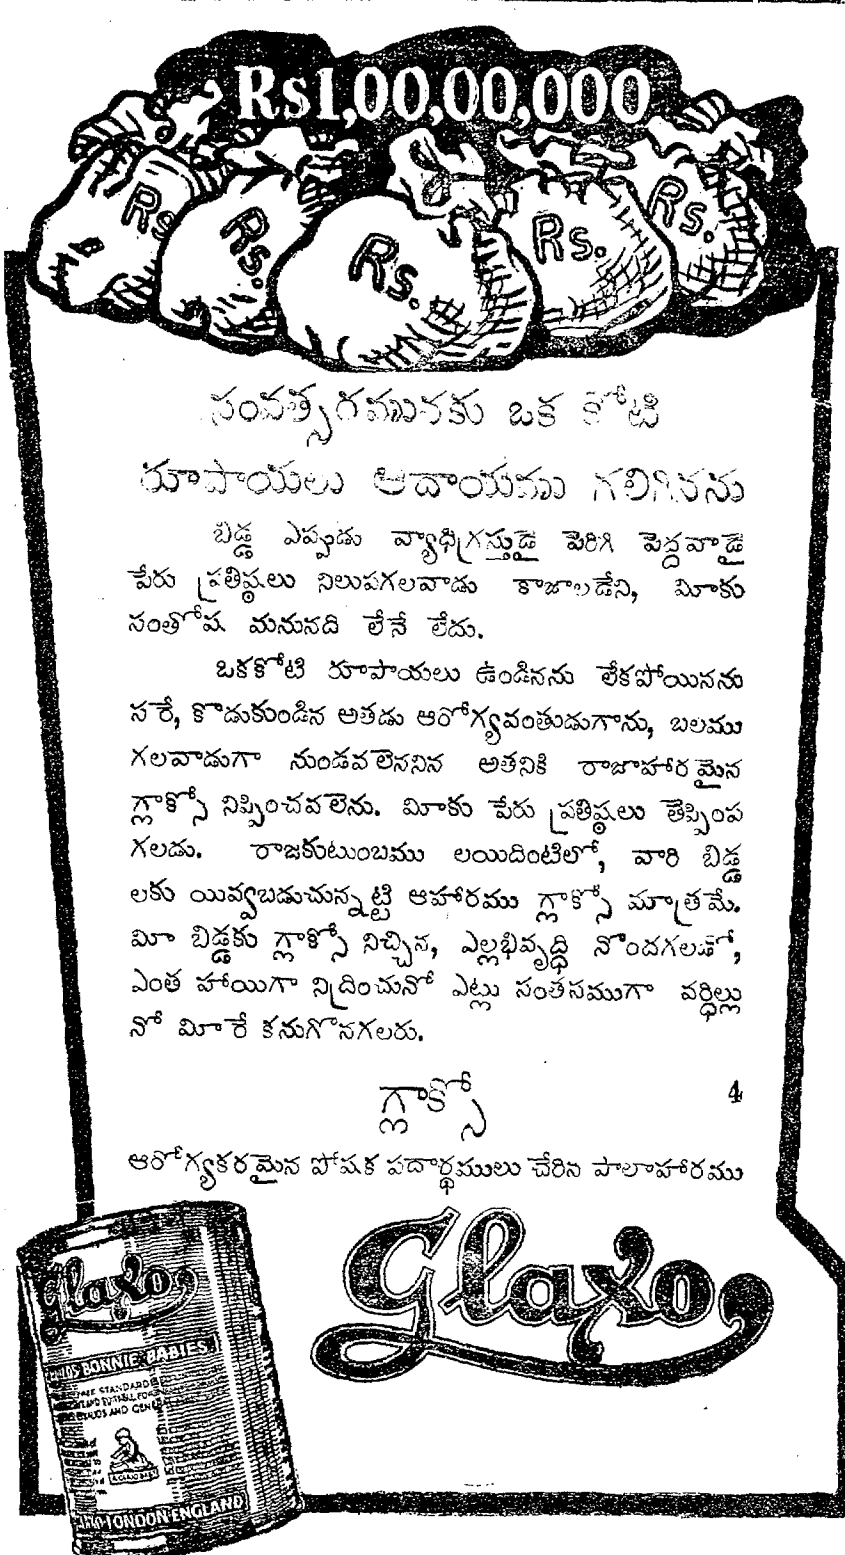 Rs1,00,00,000
Rs. Rs. Rs. Rs. Rs.
సంవత్సరమునకు ఒక కోటి
రూపాయలు ఆదాయము గలిగినను
బిడ్డ ఎప్పుడు వ్యాధిగ్రస్తుడై పెరిగి పెద్దవాడై
పేరు ప్రతిష్ఠలు నిలుపగలవాడు కాజాలడేని, మీకు
సంతోష మనునది లేనే లేదు.
ఒకకోటి రూపాయలు ఉండినను లేకపోయినను
సరే, కొడుకుండిన అతడు ఆరోగ్యవంతుడుగాను, బలము
గలవాడుగా నుండవలెననిన అతనికి రాజాహారమైన
గ్లాక్సో నిప్పించవలెను. మీకు పేరు ప్రతిష్ఠలు తెప్పింప
గలడు. రాజకుటుంబము లయిదింటిలో, వారి బిడ్డ
లకు యివ్వబడుచున్నట్టి ఆహారము గ్లాక్సో మాత్రమే.
మీ బిడ్డకు గ్లాక్సో నిచ్చిన, ఎల్లభివృద్ధి నొందగలడో,
ఎంత హాయిగా నిద్రించునో ఎట్లు సంతసముగా వర్ధిల్లు
నో మీరే కనుగొనగలరు.
గ్లాక్సో 4
ఆరోగ్యకరమైన పోషక పదార్థములు చేరిన పాలాహారము
Glaxo
Glaxo
BUILDS BONNIE BABIES
STANDARD
AND
LONDON ENGLAND